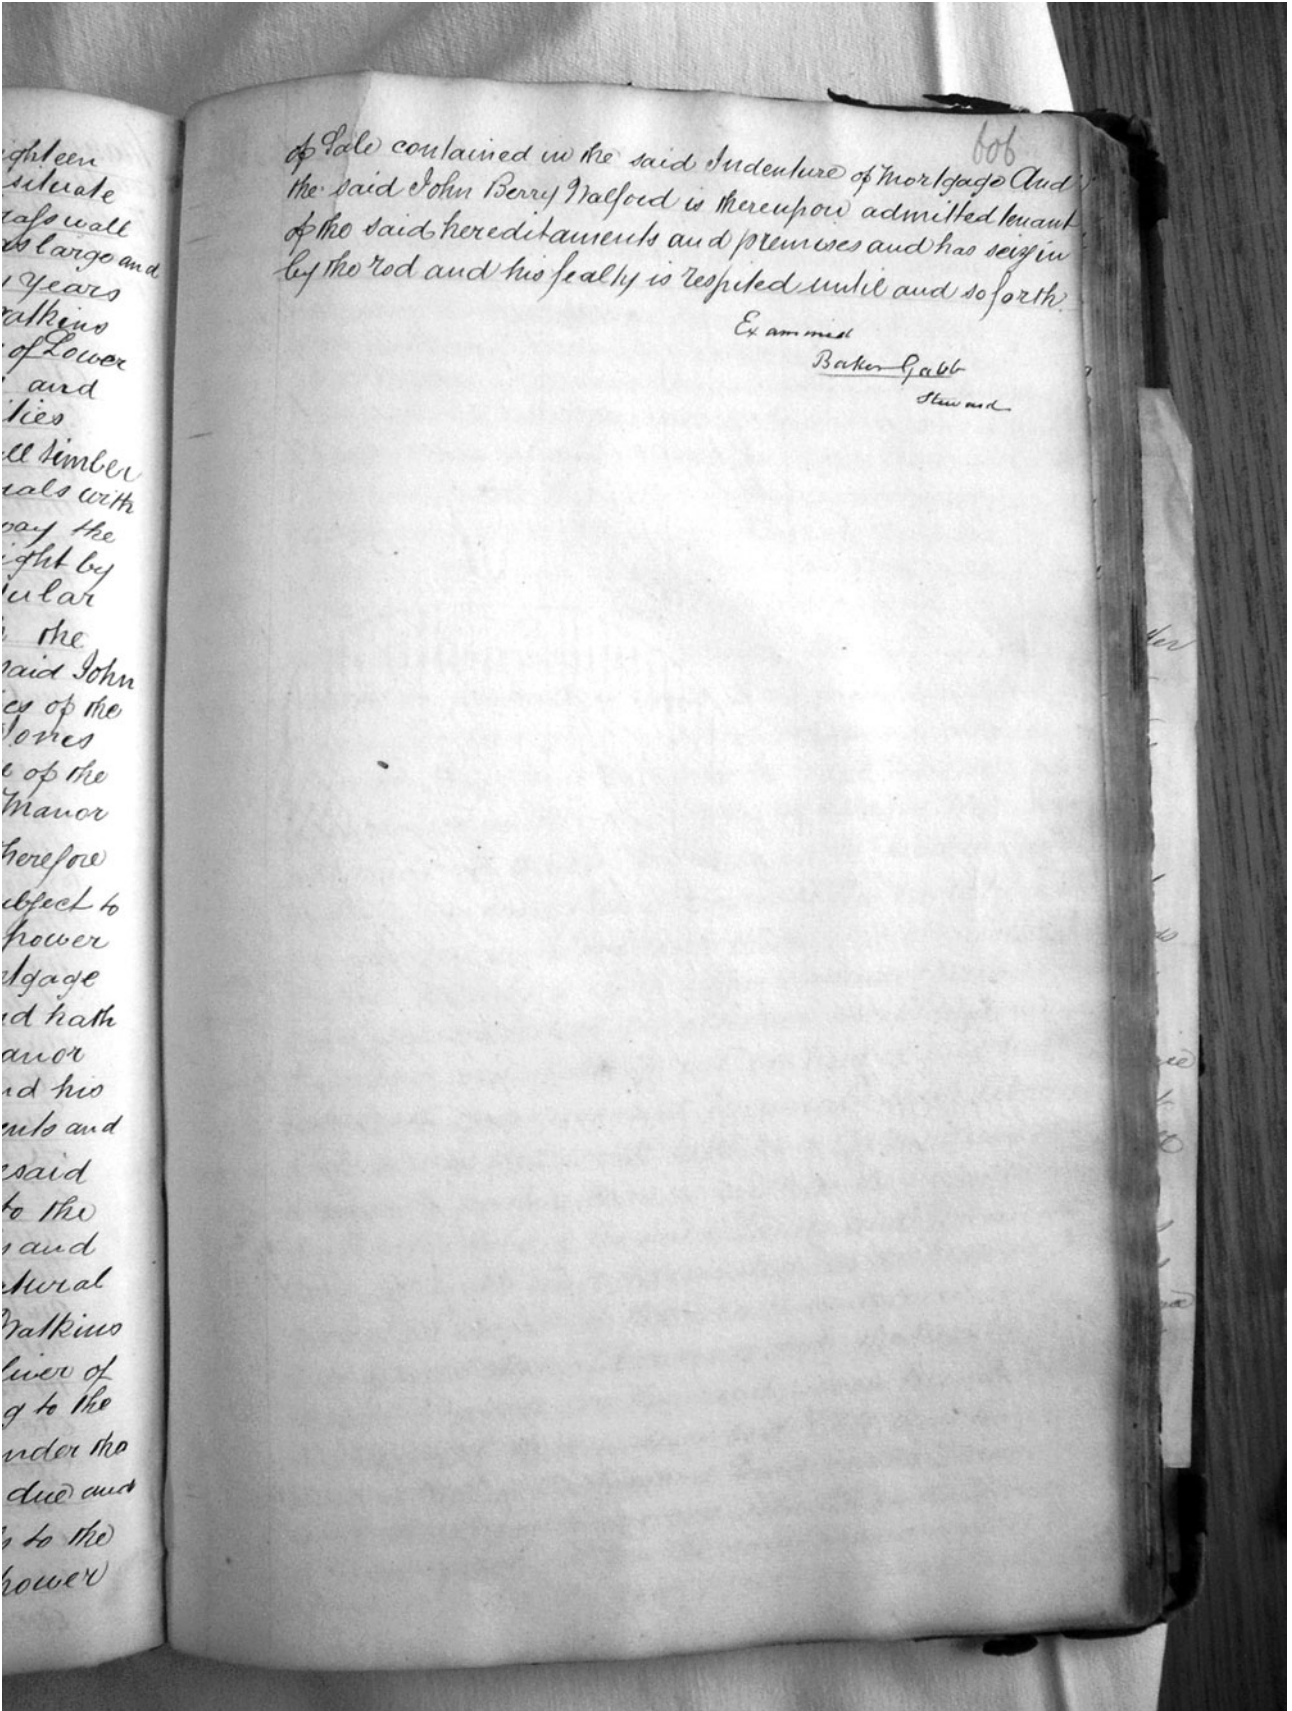 ghteen
situate
rass wall
as large and
Years
atkins
of Lower
and
ties
ll timber
ials with
pay the
ight by
ular
the
said John
es of the
Jones
e of the
Manor
herefore
ubject to
power
rtgage
id hath
anor
nd his
ents and
esaid
to the
s and
atural
Watkins
liver of
g to the
nder the
due and
s to the
power
606
of Sale contained in the said Indenture of Mortgage And
the said John Berry Walford is thereupon admitted tenant
of the said hereditaments and premises and has seizin
by the rod and his fealty is respited until and so forth.
Examined
Baker Gabb
Steward